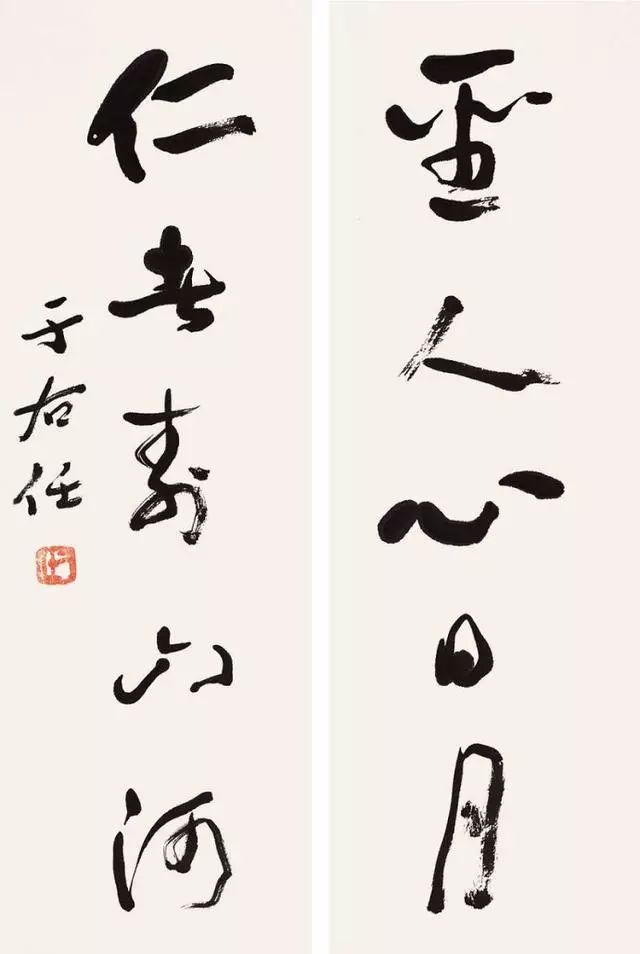 聖人心日月
仁者壽山河
于右任